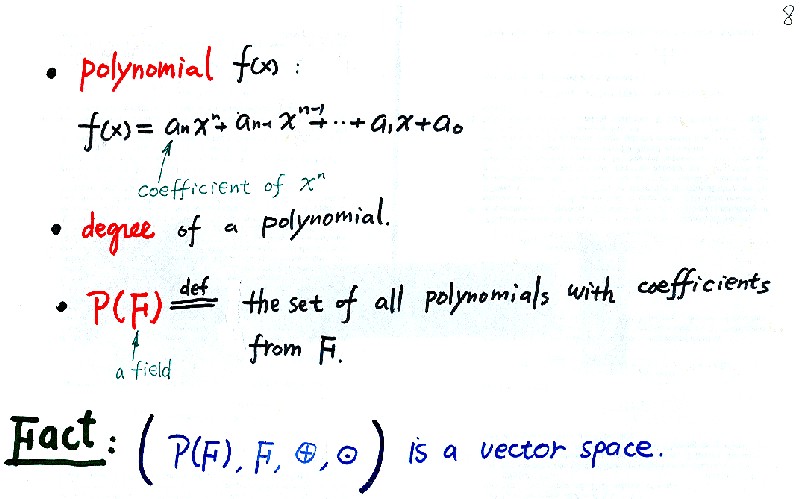 8
• polynomial f(x) :
f(x) = aₙxⁿ + aₙ₋₁ xⁿ⁻¹ + ⋯ + a₁x + a₀
coefficient of xⁿ
• degree of a polynomial.
• P(F) def the set of all polynomials with coefficients
from F.
a field
Fact : ( P(F), F, ⊕, ⊙ ) is a vector space.